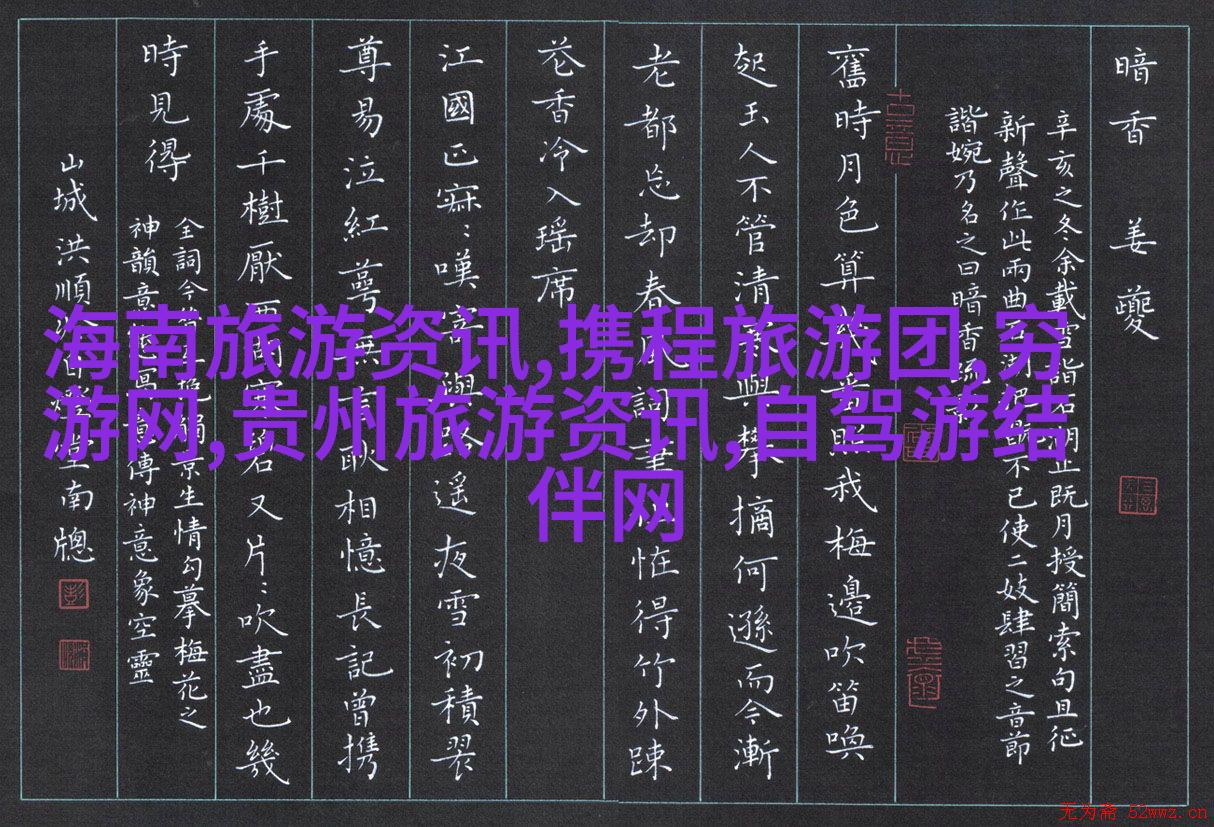 暗香 姜夔
辛亥之冬余載雪詣石湖止既月授簡索句且征
新聲作此兩曲石湖把玩不已使二妓肆習之音節
諧婉乃名之曰暗香疏影
古意
舊時月色算幾番照我梅邊吹笛喚
起玉人不管清寒與攀摘何遜而今漸
老都忘却春風詞筆但恠得竹外踈
花香冷入瑶席
江國正寐：嘆寄與路遥夜雪初積翠
尊易泣紅萼無言耿相憶長記曾携
手處千樹厭西湖寒碧又片：吹盡也幾
時見得
全詞今昔 觸景生情勾摹梅花之
神韻意 傳神意象空靈
山城洪順 堂南牕
海南旅游资讯,携程旅游团,穷
游网,贵州旅游资讯,自驾游结
伴网
无为斋 52wwz.cn